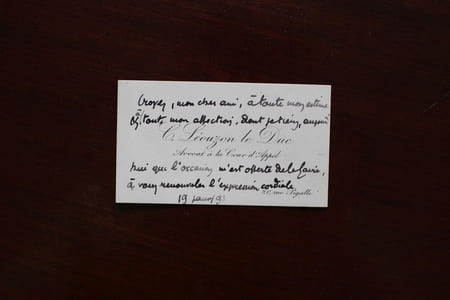 Croyez, mon cher ami, à toute mon estime
et toute mon affection, dont je tiens, aujourd'
C. Léouzon le Duc
Avocat à la Cour d'Appel
hui que l'occasion m'est offerte de le faire,
à vous renouveler l'expression cordiale.
rue Pigalle
19 janv 9